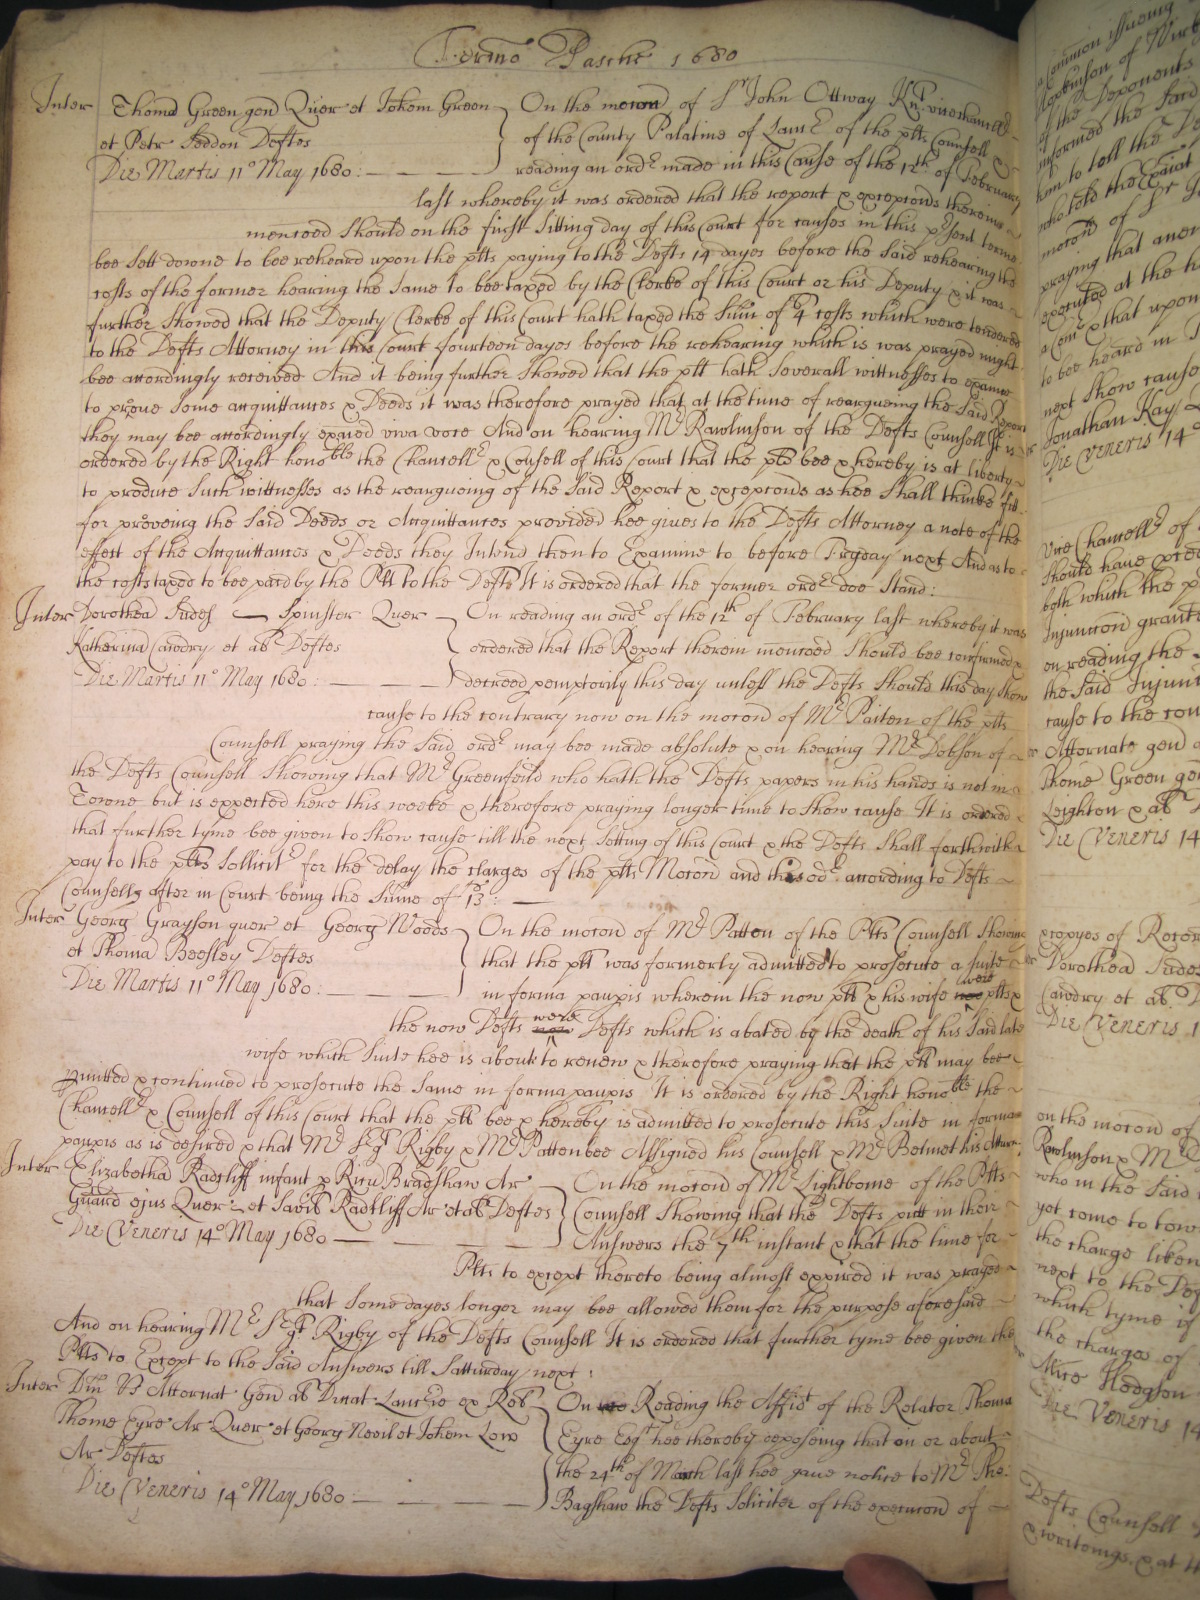 Termo Pasche 1680
Inter Thomã Green gen Quer et Johem Green
et Petr Seddon Deftes
Die Martis 11o May 1680:
On the mocon of Sr John Ottway Knt vicechancellr
of the County Palatine of Lancr of the plts Councell &
reading an ordr made in this Cause of the 12th of February
last whereby it was ordered that the report & excepcons therein
menconed should on the first sitting day of this Court for causes in this psent terme
bee sett downe to bee reheard upon the plts paying to the Defts 14 dayes before the said rehearing the
costs of the former hearing the same to bee taxed by the Clerke of this Court or his Deputy & it was
further shewed that the Deputy Clerke of this Court hath taxed the Sum of £4 costs which were tendered
to the Defts Attorney in this Court fourteen dayes before the rehearing which is was prayed might
bee accordingly received And it being further shewed that the plt hath severall wittnesses to exame
to prove some acquittances & Deeds it was therefore prayed that at the time of reargueing the said Report
they may bee accordingly exaied viva voce And on hearing Mr Rawlinson of the Defts Counsell It is
ordered by the Right honoble the Chancellr & Counsell of this Court that the plt bee & hereby is at liberty
to produce such wittnesses as the reargueing of the said Report & excepcons as hee shall thinke fitt
for proveing the said Deeds or Acquittances provided hee gives to the Defts Attorney a note of the
effect of the Acquittances & Deeds they Intend then to Examine to before Fryday next And as to
the costs taxed to bee paid by the Plt to the Defts It is ordered that the former ordr doe stand:
Inter Dorothea Spinster Quer
Katherina Cawdry et als Deftes
Die Martis 11o May 1680:
On reading an ordr of the 12th of February last whereby it was
ordered that the Report therein menconed should bee confirmed &
decreed pemptorily this day unless the Defts should this day shew
cause to the contrary now on the mocon of Mr Patten of the plts
Counsell praying the said ordr may bee made absolute & on hearing Mr Dobson of
the Defts Counsell shewing that Mr Greenfeild who hath the Defts papers in his hands is not in
Towne but is expected here this weeke & therefore praying longer time to shew cause It is ordered
that further tyme bee given to shew cause till the next sitting of this Court & the Defts shall forthwith
pay to the plts sollicitr for the delay the charges of the plts Mocon and this odr according to Defts
Counsells offer in Court being the Sume of 13s:
Inter Georg Grayson quer et Georg Woods
et Thoma Beesley Deftes
Die Martis 11o May 1680:
On the mocon of Mr Patten of the Plts Counsell shewing
that the plt was formerly admitted to prosecute a suite
in forma paupis wherein the now plt & his wife were plts &
the now Defts were Defts which is abated by the death of his said late
wife which suite hee is about to renew & therefore praying that the plt may bee
pmitted & continued to prosecute the same in forma paupis It is ordered by the Right honoble the
Chancellr & Counsell of this Court that the plt bee & hereby is admitted to prosecute this suite in forma
paupis as is desired & that Mr Sergt Rigby & Mr Patten bee Assigned his Counsell & Mr Bennet his Atturn
Inter Elizabetha Radcliff infant p Ricu Bradshaw Ar
Guard ejus Quer et Savil Radcliff Ar et als Deftes
Die Veneris 14o May 1680
On the mocon of Mr Lightbowne of the Plts
Counsell shewing that the Defts putt in their
Answers the 7th instant & that the time for
Plts to except thereto being almost expired it was prayed
that some dayes longer may bee allowed them for the purpose aforesaid
And on hearing Mr Sergt Rigby of the Defts Counsell It is ordered that further tyme bee given the
Plts to Except to the said Answers till Satturday next:
Inter Attornat Gen Ducat ex Rel
Thome Eyre Ar Quer et Georg Nevil et Johem Low
Ar Deftes
Die Veneris 14o May 1680:
On Reading the Affidt of the Relator Thoma
Eyre Esqr hee thereby deposeing that on or about
the 24th of March last hee gave notice to Mr Tho:
Bagshaw the Defts Soliciter of the execucon of
a Comon issuing
Hopkinson of
of the Deponents
informed the said
him to tell the De
who told the
mocon of Sr
praying that
executed at the
& that upon
to bee heard in
next shew cause
Jonathan Kay
Die Veneris 14o
Vice Chancellr of
should have
both which the
Injuncon grant
on reading the
the said Injun
cause to the con
Attornate gen
Thome Green gen
Leighton & als
Die Veneris 14
Dorothea
Cawdry et als
Die Veneris 1
on the mocon of
Rawlinson & Mr
who in the said
yet come to tow
the charge liken
next to the De
which tyme if
the charges of
Alice Hodgson
Die Veneris 14
Defts Counsell
& writeings & at